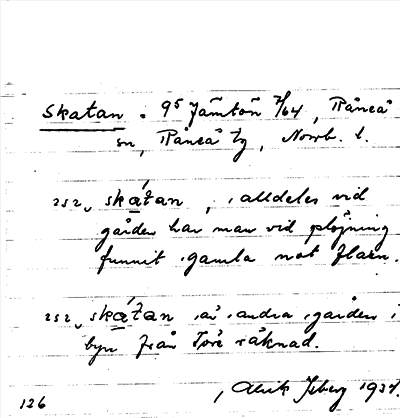 Skatan . 95 Jämtön 7/64, Råneå
sn, Råneå tg, Norrb. l.
252, skatan, alldeles vid
gården har man vid plöjning
funnit gamla not flarn.
252, skatan är andra gården i
byn från Töre räknad.
Isberg 1937.
126